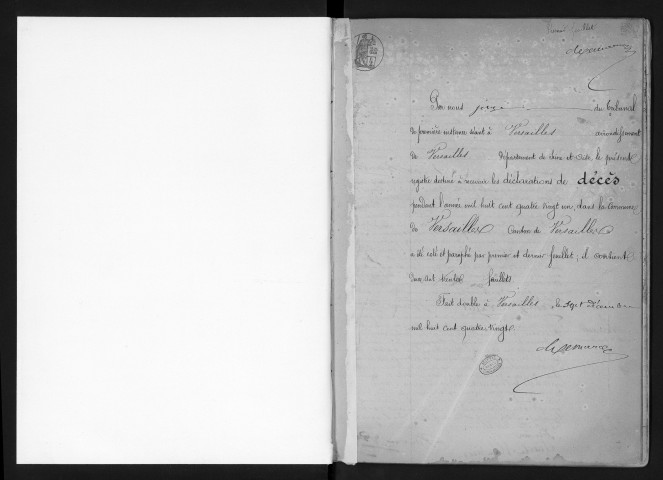 Par nous juge du Tribunal
de première instance séant à Versailles arrondissement
de Versailles département de Seine et Oise, le présent
registre destiné à recevoir les déclarations de décès
pendant l'année mil huit cent quatre vingt un, dans la Commune
de Versailles Canton de Versailles
a été coté et paraphé par premier et dernier feuillet; il contient
feuillets
Fait double à Versailles, le sept Décembre
mil huit cent quatre vingt